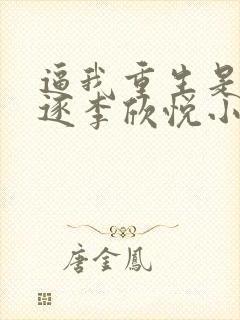 逼我重生是
逐李欣悦小
唐金鳳